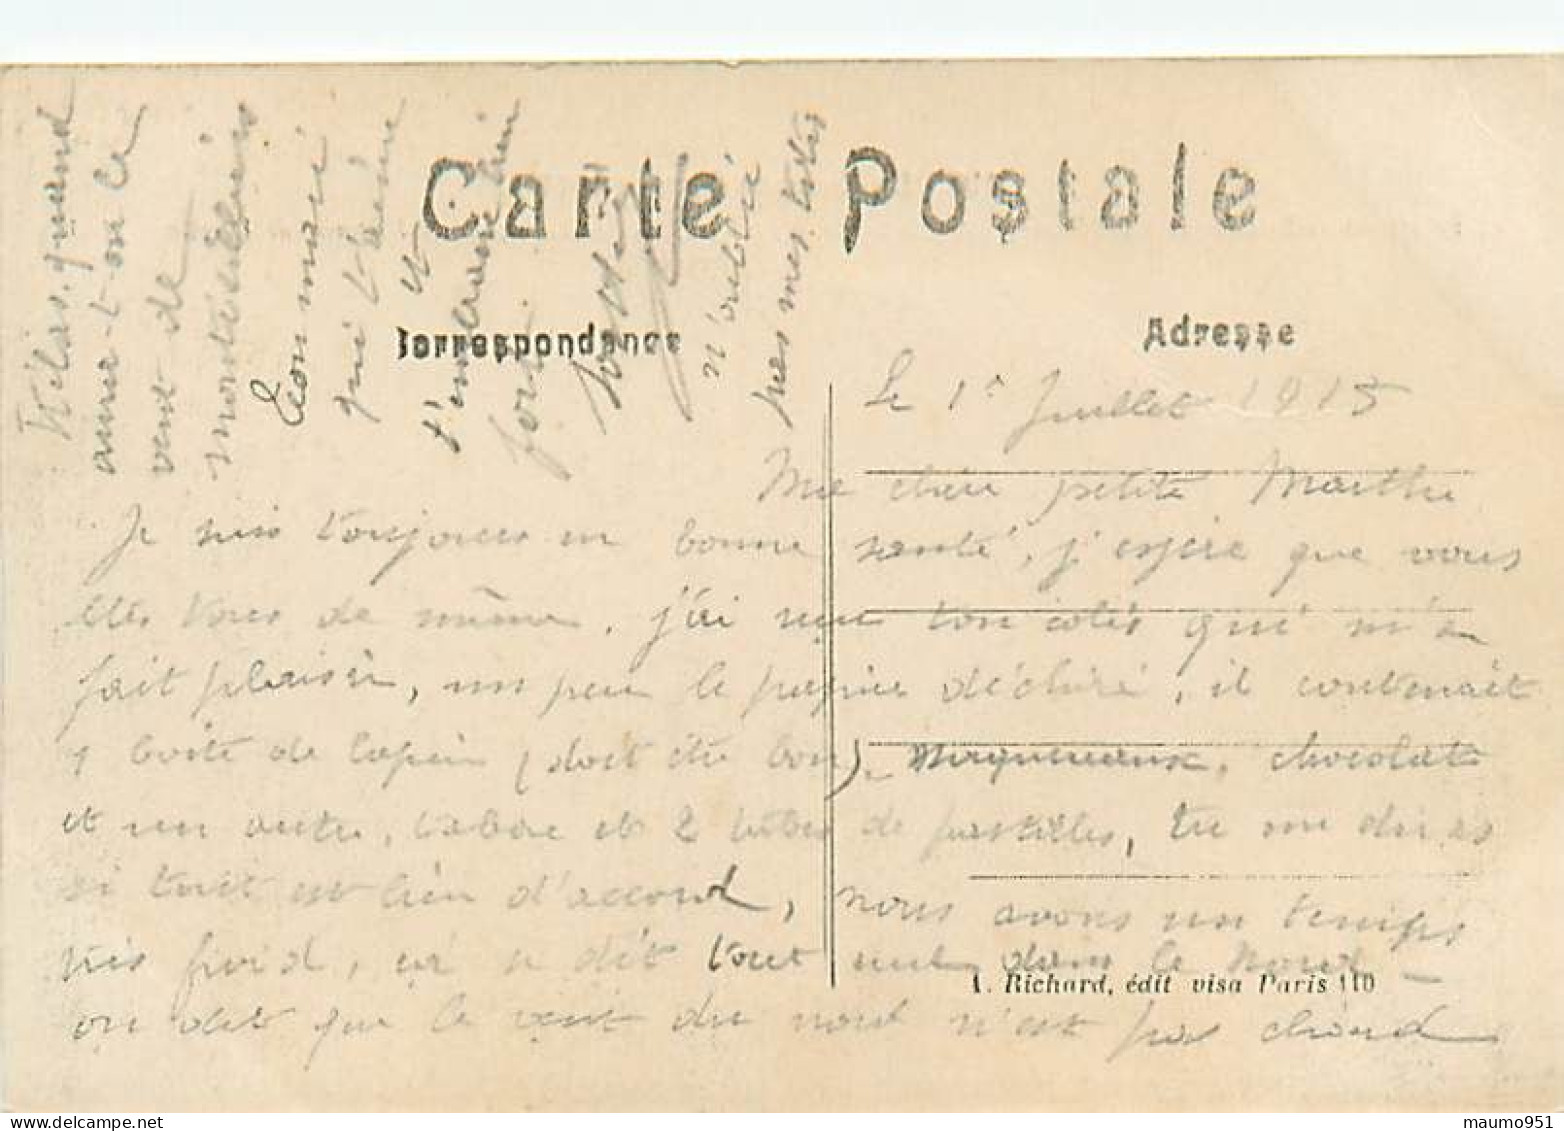 Carte Postale
Correspondance
Adresse
Le 1r Juillet 1915
Ma chère petite Marthe
Je suis toujours en bonne santé, j'espère que vous
êtes tous de même, j'ai reçu ton colis qui m'a
fait plaisir, un peu le papier déchiré, il contenait
1 boîte de lapin (doit être bon), Maquereaux, chocolat
et un autre, tabac et 2 tubes de pastilles, tu me diras
si tout est bien d'accord, nous avons un temps
très froid, on dit tout dans le Nord -
on dit que le vent du nord n'est pas chaud
Hélas, quand
aura-t-on le
vent de
Montélibéris
Ton mari
qui t'aime
et
t'embrasse bien
fort
n'oublie
pas mes
A. Richard, édit visa Paris 110
maumo951